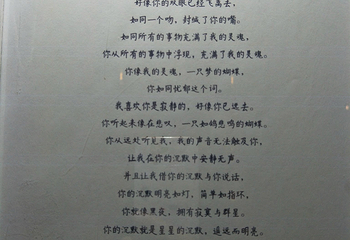 好像你的双眼已经飞离去，
如同一个吻，封缄了你的嘴。
如同所有的事物充满了我的灵魂，
你从所有的事物中浮现，充满了我的灵魂。
你像我的灵魂，一只梦的蝴蝶，
你如同忧郁这个词。
我喜欢你是寂静的，好像你已远去。
你听起来像在悲叹，一只如鸽悲鸣的蝴蝶。
你从远处听见我，我的声音无法触及你，
让我在你的沉默中安静无声。
并且让我借你的沉默与你说话，
你的沉默明亮如灯，简单如指环，
你就像黑夜，拥有寂寞与群星。
你的沉默就是星星的沉默，遥远而明亮。